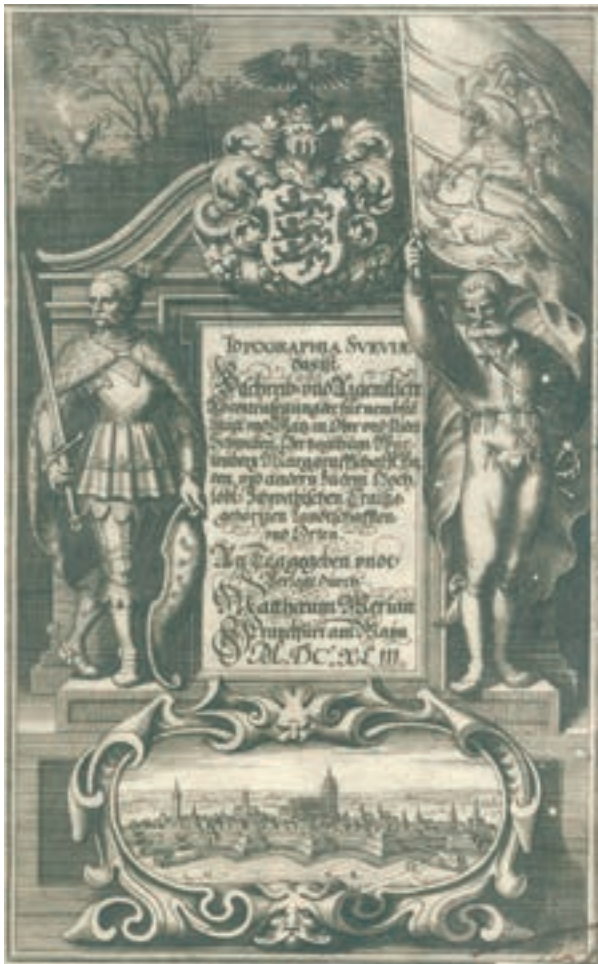 TOPOGRAPHIA SVEVIÆ
das ist
Beschreib: vnd Aigentliche
Abcontrafeitung der fürnembste
Stätt vnd Plätz in Ober vnd Nider
Schwaben, Hertzogthum Würtenberg
Marggraffschafft
vnd andern zu dem Hoch
löbl: Schwabischen Craiße
gehörigen Landtschafften
vnd Orten.
An Tag gegeben vndt
Verlegt durch
Matthæum Merian
Franckfurt am Mayn
M.DC.XLIII